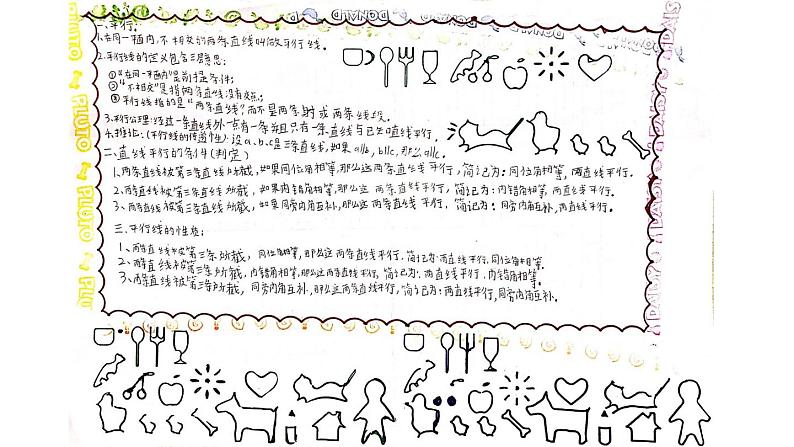 DONALD
一、平行:
1.在同一平面内,不相交的两条直线叫做平行线。
2.平行线的定义包含三层意思:
①“在同一平面内”是前提条件;
②“不相交”是指两条直线没有交点;
③平行线指的是“两条直线”而不是两条射或两条线段。
3.平行公理:经过一条直线外一点有一条并且只有一条直线与已知直线平行。
4.推论:(平行线的传递性).设a、b、c是三条直线,如果a∥b,b∥c,那么a∥c.
二、直线平行的条件(判定)
1.两条直线被第三条直线所截,如果同位角相等,那么这两条直线平行,简记为:同位角相等,两直线平行。
2.两条直线被第三条直线所截,如果内错角相等,那么这两条直线平行,简记为:内错角相等,两直线平行。
3、两条直线被第三条直线所截,如果同旁内角互补,那么这两条直线平行,简记为:同旁内角互补,两直线平行。
三.平行线的性质:
1、两条直线被第三条所截,同位角相等,那么这两条直线平行.简记为:两直线平行,同位角相等。
2、两条直线被第三条所截,内错角相等,那么这两条直线平行,简记为:两直线平行,内错角相等。
3、两条直线被第三条所截,同旁内角互补,那么这两条直线平行,简记为:两直线平行,同旁内角互补.
PLUTO
PLUTO
PLU
DAISY
DAISY